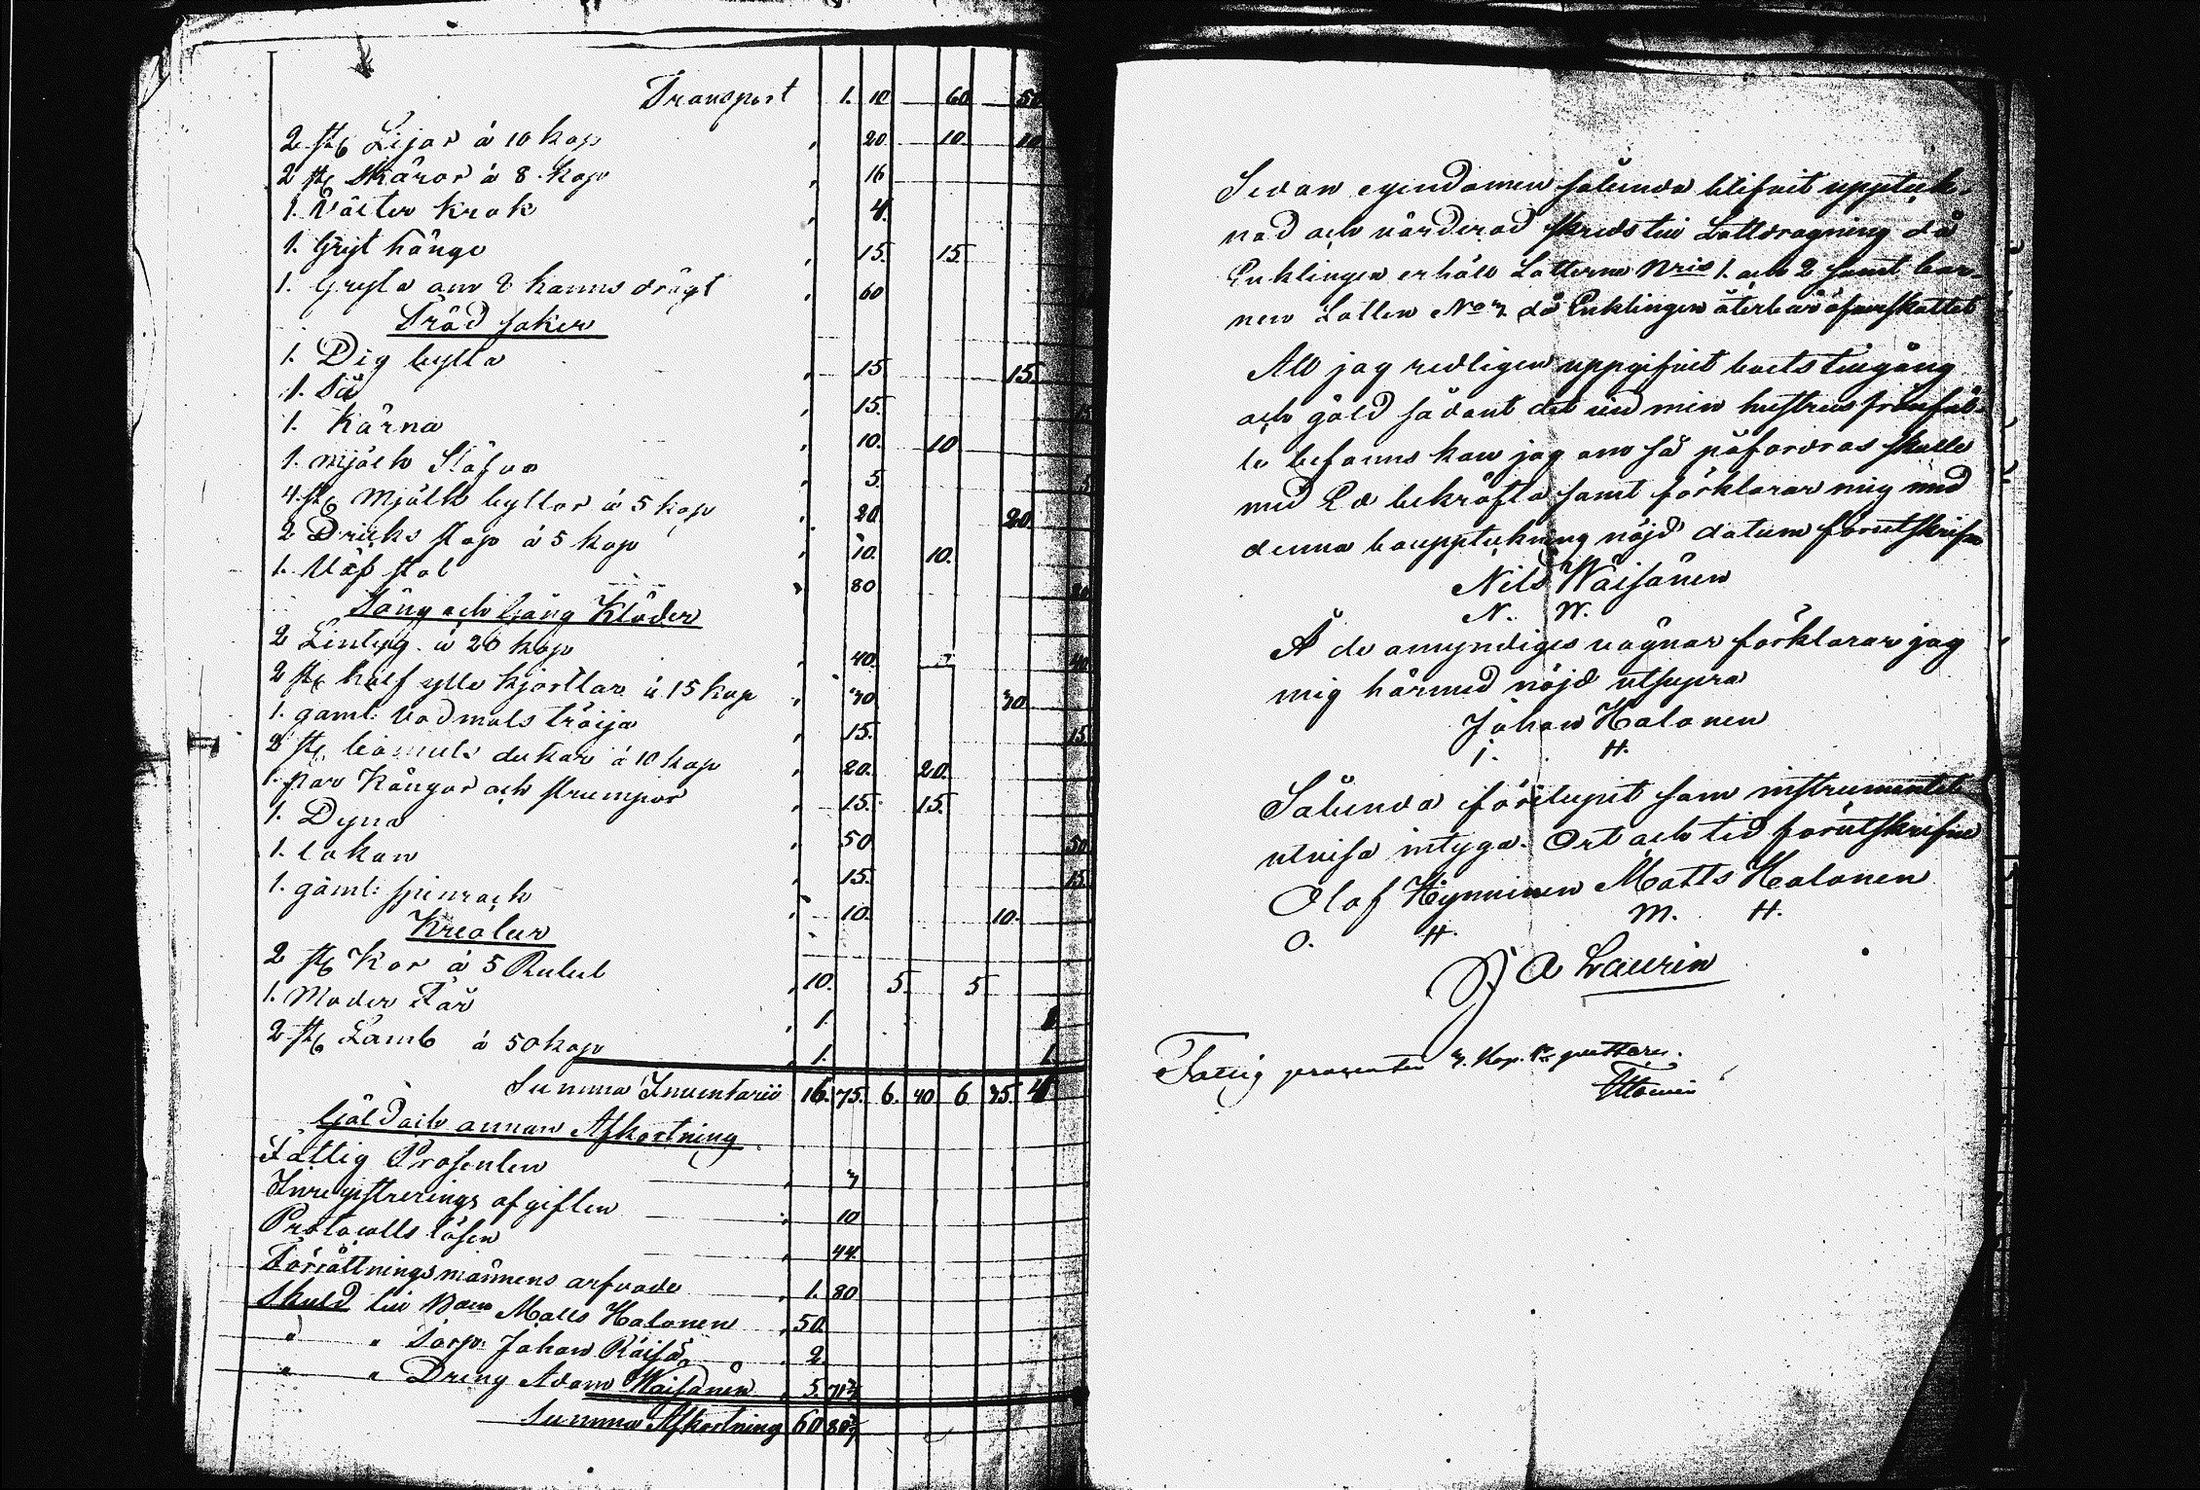 Transport 1. 10 60 50
2 st. Lijor á 10 kop " 20. 10. 10
2 st. Skäror á 8 kop " 16
1. krok " 4.
1. Gryt hänge " 15. 15.
1. Gryta om 2 kannors drägt " 60
Träd saker
1. Dig bytta " 15 15.
1. Så " 15. 15
1. Kärna " 10. 10
1. Mjölk " 5. 5
4 st. Mjölk byttor á 5 kop " 20 20.
2 Dricks stop á 5 kop " 10. 10.
1. Väf stol " 80 80
Säng och Gång Kläder
2 Lintyg á 20 kop " 40. 40
2 st. half ylle kjortlar á 15 kop " 30 30.
1. gaml: Vadmals tröija " 15. 15
2 st. bomuls dukar á 10 kop " 20. 20.
1. par Kängor och strumpor " 15. 15.
1. Dyna " 50 50
1. lakan " 15. 15
1. gaml: spinrock " 10. 10.
Kreatur
2 st. Kor á 5 Rubel " 10. 5. 5
1. Moder Får " 1. 1.
2 st. Lamb á 50 kop " 1. 1.
Summa Inventarii 16. 75. 6. 40 6 35. 4
Gäld och annan Afkortning
Fattig Prosenten " 3
Inregistrerings afgiften " 10
Protocolls lösen " 44.
Förrättningsmännens arfvode " 1. 80
Skuld till Matts Halonen " 50.
" " Torp. Johan Räisä " 2.
" " Dräng Adam Wäisänen " 5.
Summa Afkortning 60
Sedan egendomen sålunda blifvit upptek-
nad och värderad skreds till Lottdragning då
Enklingen erhöll Lotterna Nris 1. och 2 samt bar-
nen Lotten No 3 då Enklingen återbär öfverskottet
Att jag redligen uppgifvit boets tillgång
och gäld sådant det vid min hustrus frånfäl-
le befanns kan jag om så påfordras skulle
med Ed bekräfta samt förklarar mig med
denna bouppteckning nöjd datum förutskrifne
Nils Wäisänen
N. W.
Å de omyndiges vägnar förklarar jag
mig härmed nöjd utsupra
Johan Halonen
J. H.
Sålunda förelupit som instrumentet
utvisa intyga. Ort och tid förutskrifne
Olof Hynninen Matts Halonen
O. H. M. H.
J A Laurin
Fattig procenten 3. Kop. Sr quitteras.